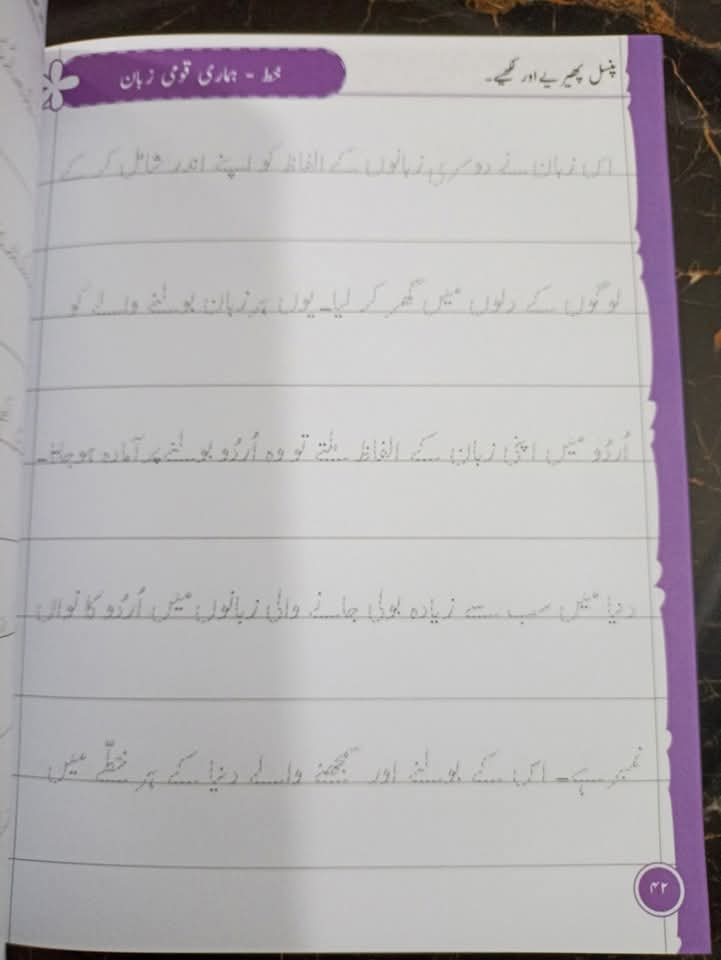 پنسل پھیریے اور لکھیے۔
خط - ہماری قومی زبان
اس زبان نے دوسری زبانوں کے الفاظ کو اپنے اندر شامل کر کے
لوگوں کے دلوں میں گھر کر لیا۔ یوں ہر زبان بولنے والے کو
اُردُو میں اپنی زبان کے الفاظ ملتے تو وہ اُردُو بولنے پر آمادہ ہو جاتا۔
دنیا میں سب سے زیادہ بولی جانے والی زبانوں میں اُردُو کا نواں
نمبر ہے۔ اس کے بولنے اور سمجھنے والے دنیا کے ہر خطّے میں
۴۲